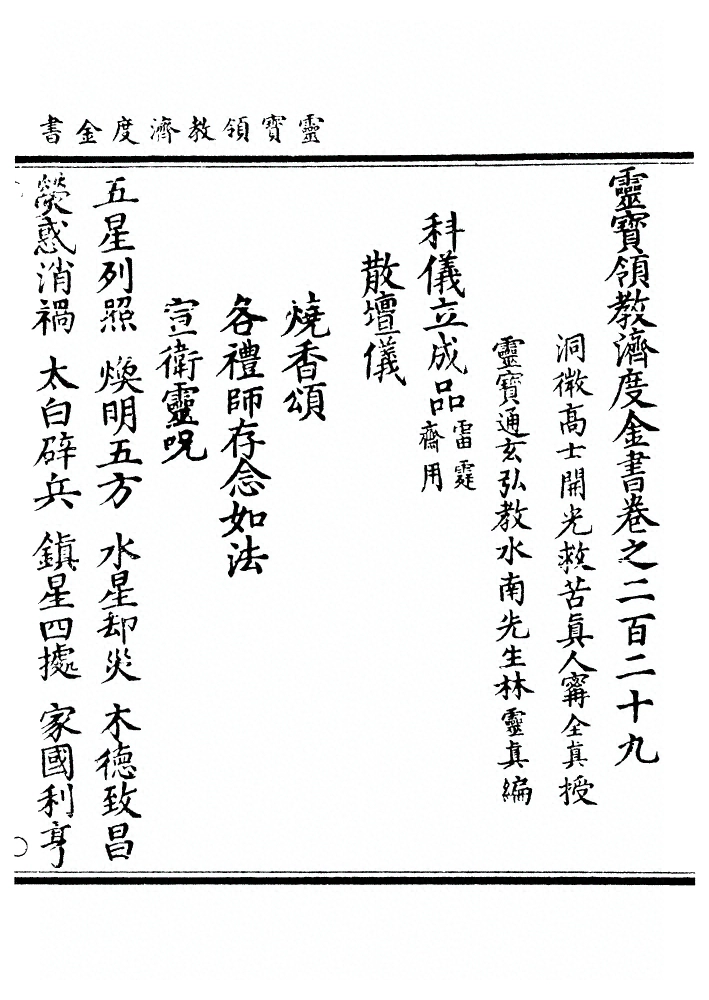 靈寶領教濟度金書
靈寶領教濟度金書卷之二百二十九
洞微高士開光救苦眞人甯全真授
靈寶通玄弘教水南先生林靈真編
科儀立成品 雷霆齋用
散壇儀
燒香頌
各禮師存念如法
宣衛靈呪
五星列照 煥明五方 水星却災 木德致昌
熒惑消禍 太白辟兵 鎮星四據 家國利亨